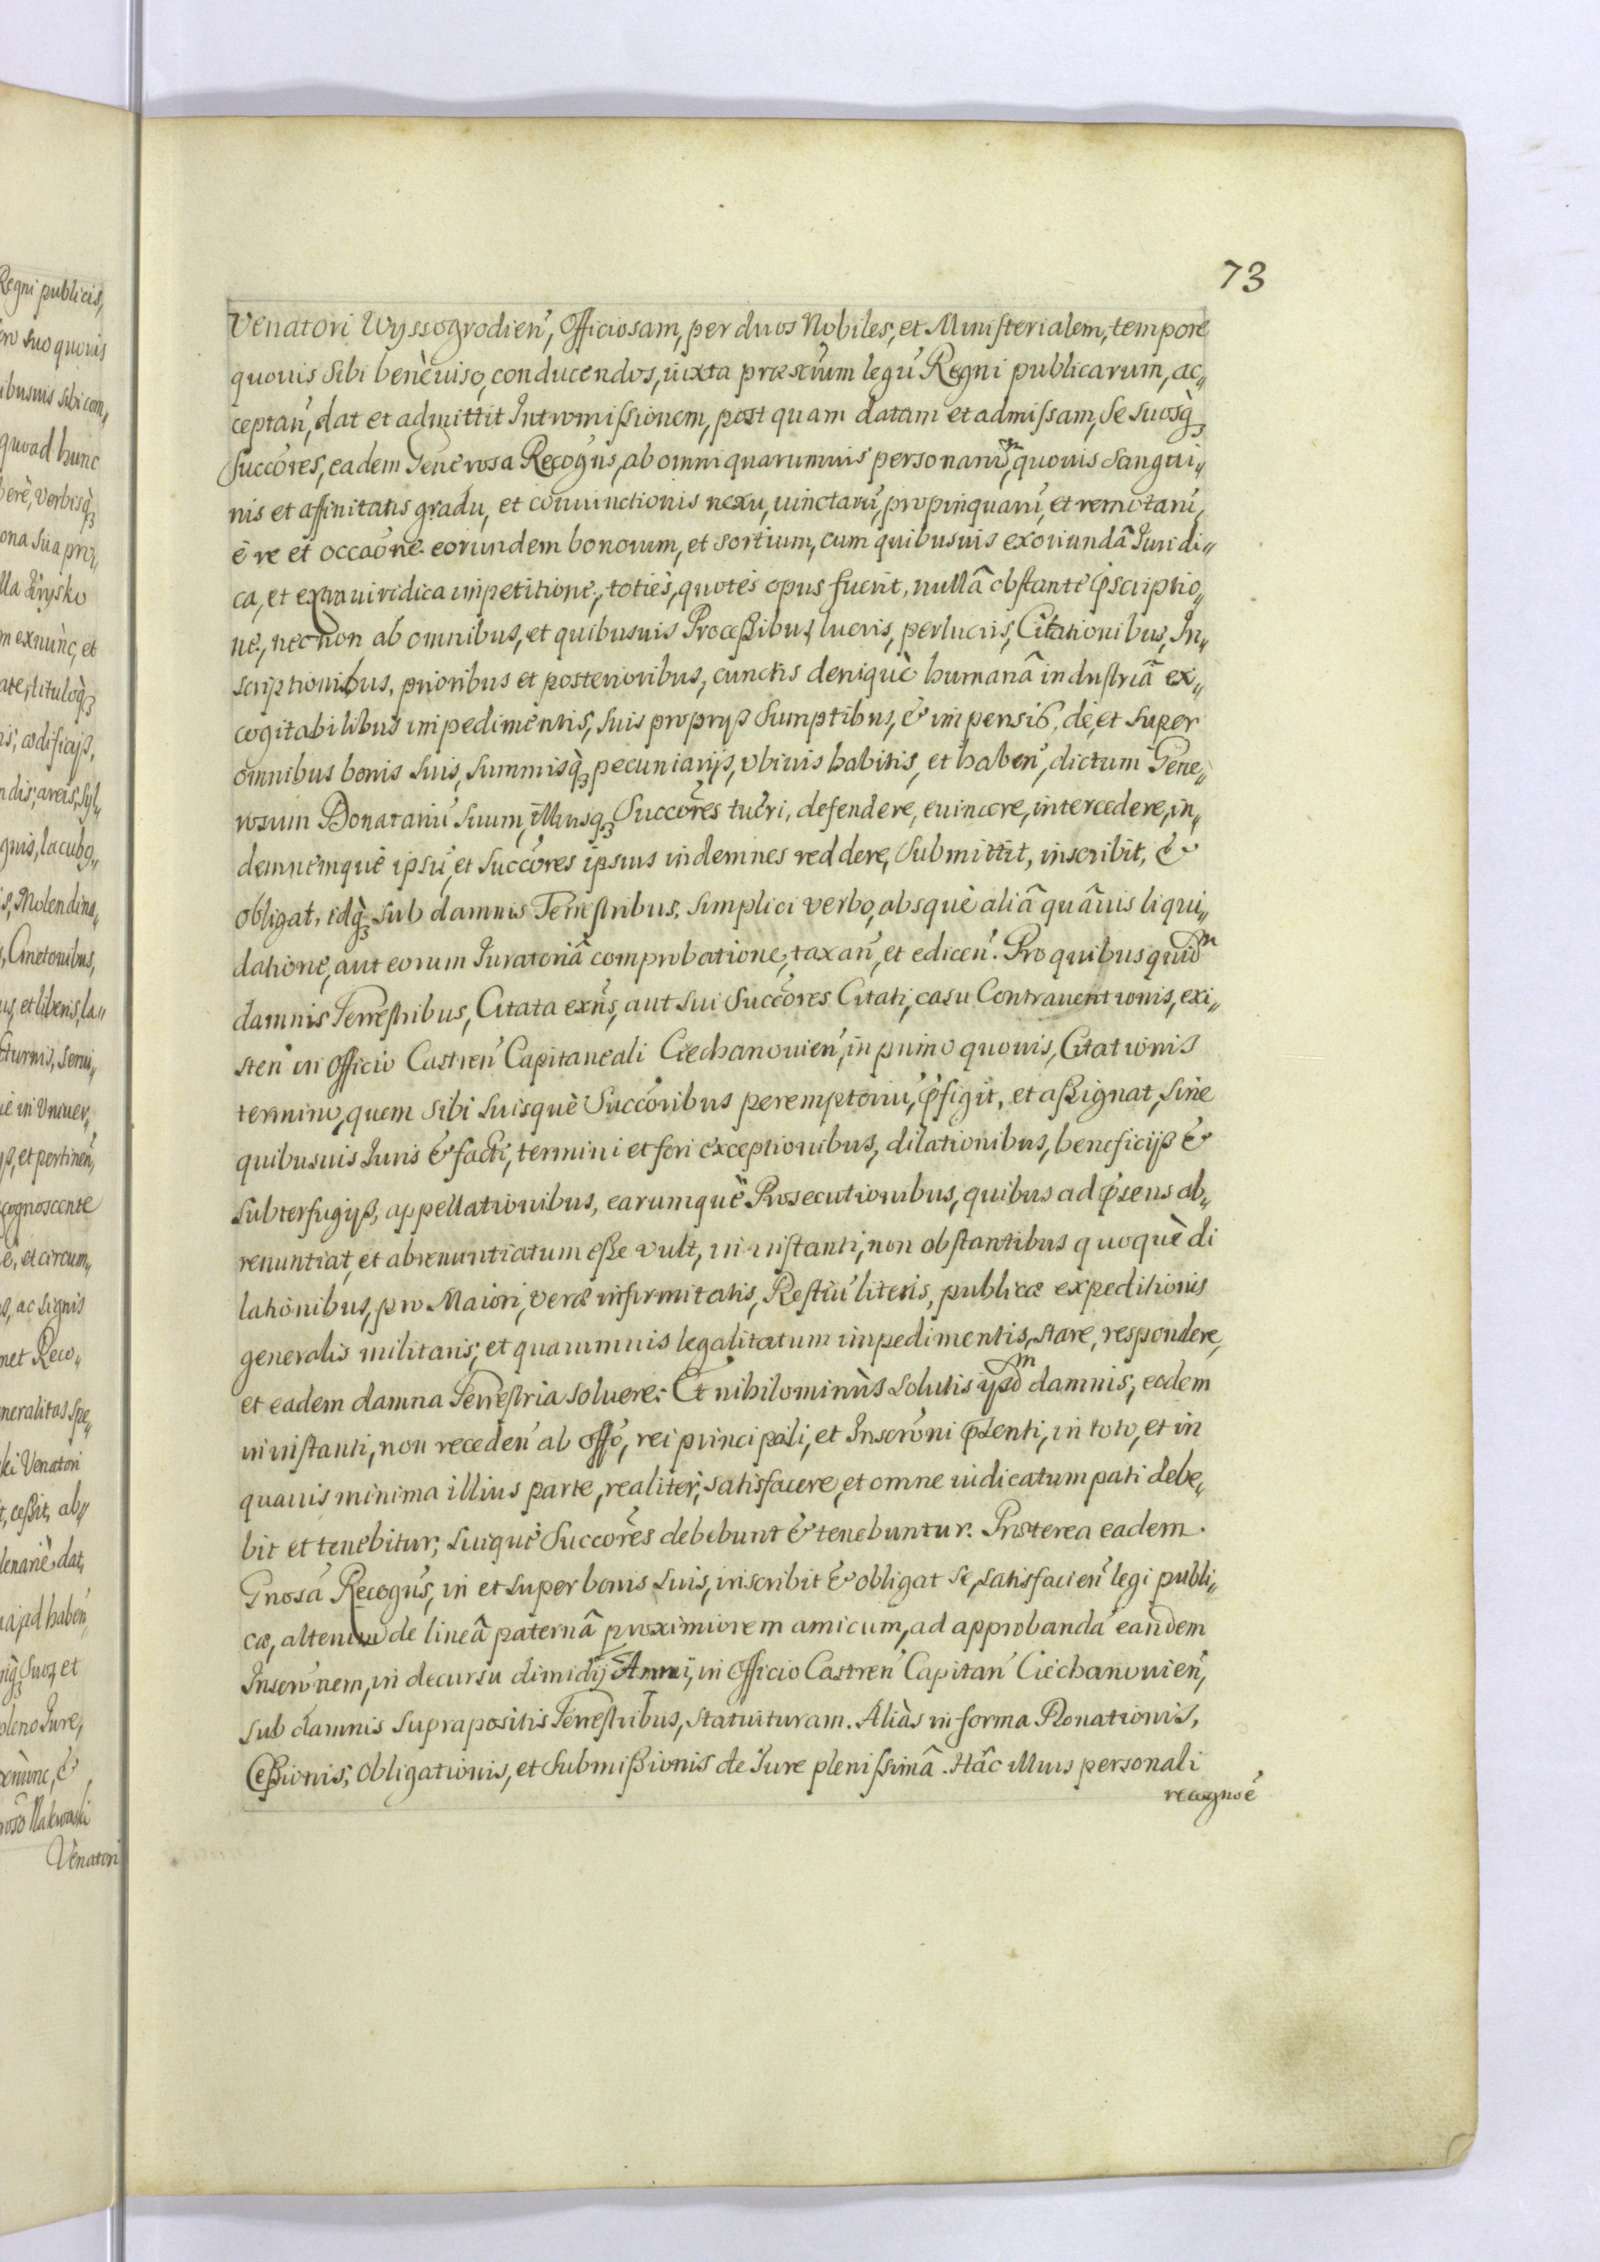 Regni publicis,
suo quouis
ibusuis sibi com„
quoad hunc
verbisq̀3
ona sua pro„
exnunc, et
titulóq̀3
ædificijs,
areis, syl„
lacubq„
Molendina„
Cmetonibus,
et liberis, la„
serui„
in Vniuer„
et pertineń,
cognoscente
et circum„
ac signis
met Reco„
neralitas spe„
ki Venatori
ceßit, ab„
lenariè dat,
ad habeń,
suoq3 et
pleno Iure,
exnunc, &
Nakwaski
Venatori
73
Venatori Wyssogrodień, Officiosam, per duos Nobiles, et Ministerialem, tempore
quouis sibi benèuiso, conducendos, iuxta præscrûm legũ Regni publicarum, ac„
ceptań, dat et admittit Intromißionem, post quam datam et admissam, se suosq̀3
Succóres, eadem Generosa Recogńs, ab omni quarumuis personarũm, quouis sangui„
nis et affinitatis gradu, et coniunctionis nexu, iunctarũ, propinquarũ, et remotarũ,
è re et occaóne eorundem bonorum, et sortium, cum quibusuis exoriundâ Iuridi„
ca, et extraiuridica impetitione, totiès, quotès opus fuerit, nullâ obstante p̃scriptio„
ne, nec non ab omnibus, et quibusuis Proceßibus, lucris, perlucris, Citationibus, In„
scriptionibus, prioribus et posterioribus, cunctis deniquè humanâ industriâ ex„
cogitabilibus impedimentis, suis proprijs sumptibus, & impensis, de, et super
omnibus bonis suis, summisq̀3 pecuniarijs, vbiuis habitis, et habeń, dictum Gene„
rosum Donatariũ suum, illiusq3 Succóres tueri, defendere, euincere, intercedere, in„
demnemquè ipsũ, et Succóres ipsius indemnes reddere, submittit, inscribit, &
obligat, idq̀3 sub damnis Terrestribus, simplici verbo, absquè aliâ quâuis liqui„
datione, aut eorum Iuratoriâ comprobatione, taxań, etediceń. Pro quibus quidm
damnis Terrestribus, Citata exńs, aut sui Succóres Citati, casu Contrauentionis, exi„
steń in Officio Castreń Capitaneali Ciechanouień, in primo quouis, Citationis
termino, quem sibi suisquè Succóribus peremptoriũ, p̃figit, et aßignat, sine
quibusuis Iuris & facti, termini et fori exceptionibus, dilationibus, beneficijs &
subterfugijs, appellationibus, earumquè Prosecutionibus, quibus ad p̃sens ab„
renuntiat, et abrenuntiatum eße vult, in instanti, non obstantibus quoquè di
lationibus, pro Maiori, veræ infirmitatis, Restiũ literis, publicæ expeditionis
generalis militaris, et quarumuis legalitatum impedimentis, stare, respondere,
et eadem damna Terrestria soluere: Et nihilominùs solutis ijsdm damnis, eadem
in instanti, non recedeń ab offo, rei principali, et Inscróni p̃senti, in toto, et in
quauis minima illius parte, realiter, satisfacere, et omne iudicatum pati debe„
bit et tenebitur, suiquè Succóres debebunt & tenebuntur. Præterea eadem
Gnosa Recogńs, in et super bonis suis, inscribit & obligat se, satisfacień legi publi„
cæ, alterum de lineâ paternâ proximiorem amicum, ad approbandã eandem
Inscrónem, in decursu dimidij Anni, in Officio Castreń Capitań Ciechanouień,
sub damnis suprapositis Terrestribus, statuituram. Aliàs in forma Donationis,
Ceßionis, Obligationis, et Submißionis de Iure plenissimâ. Hâc illius personali
recognoẽ